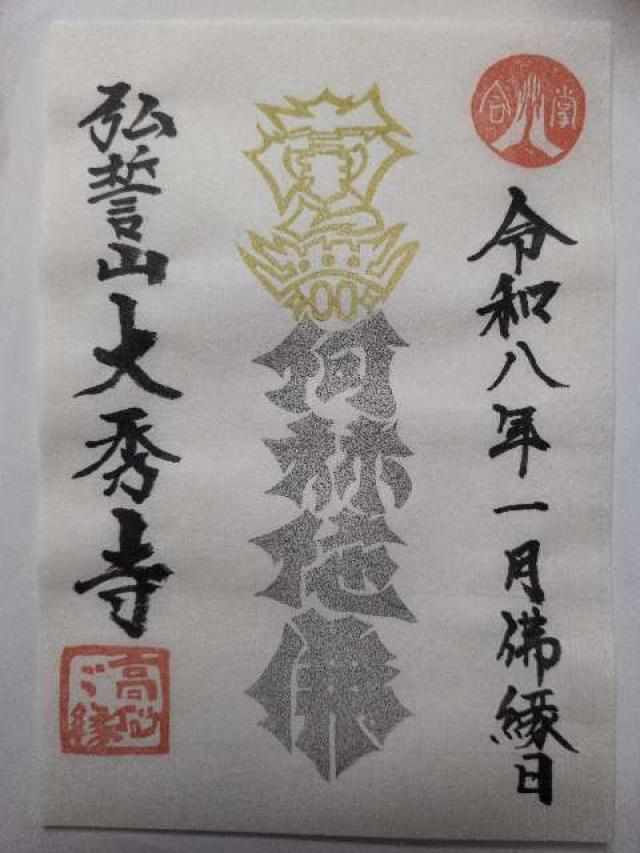 合掌
令和八年一月佛縁日
阿弥陀佛
弘誓山大秀寺